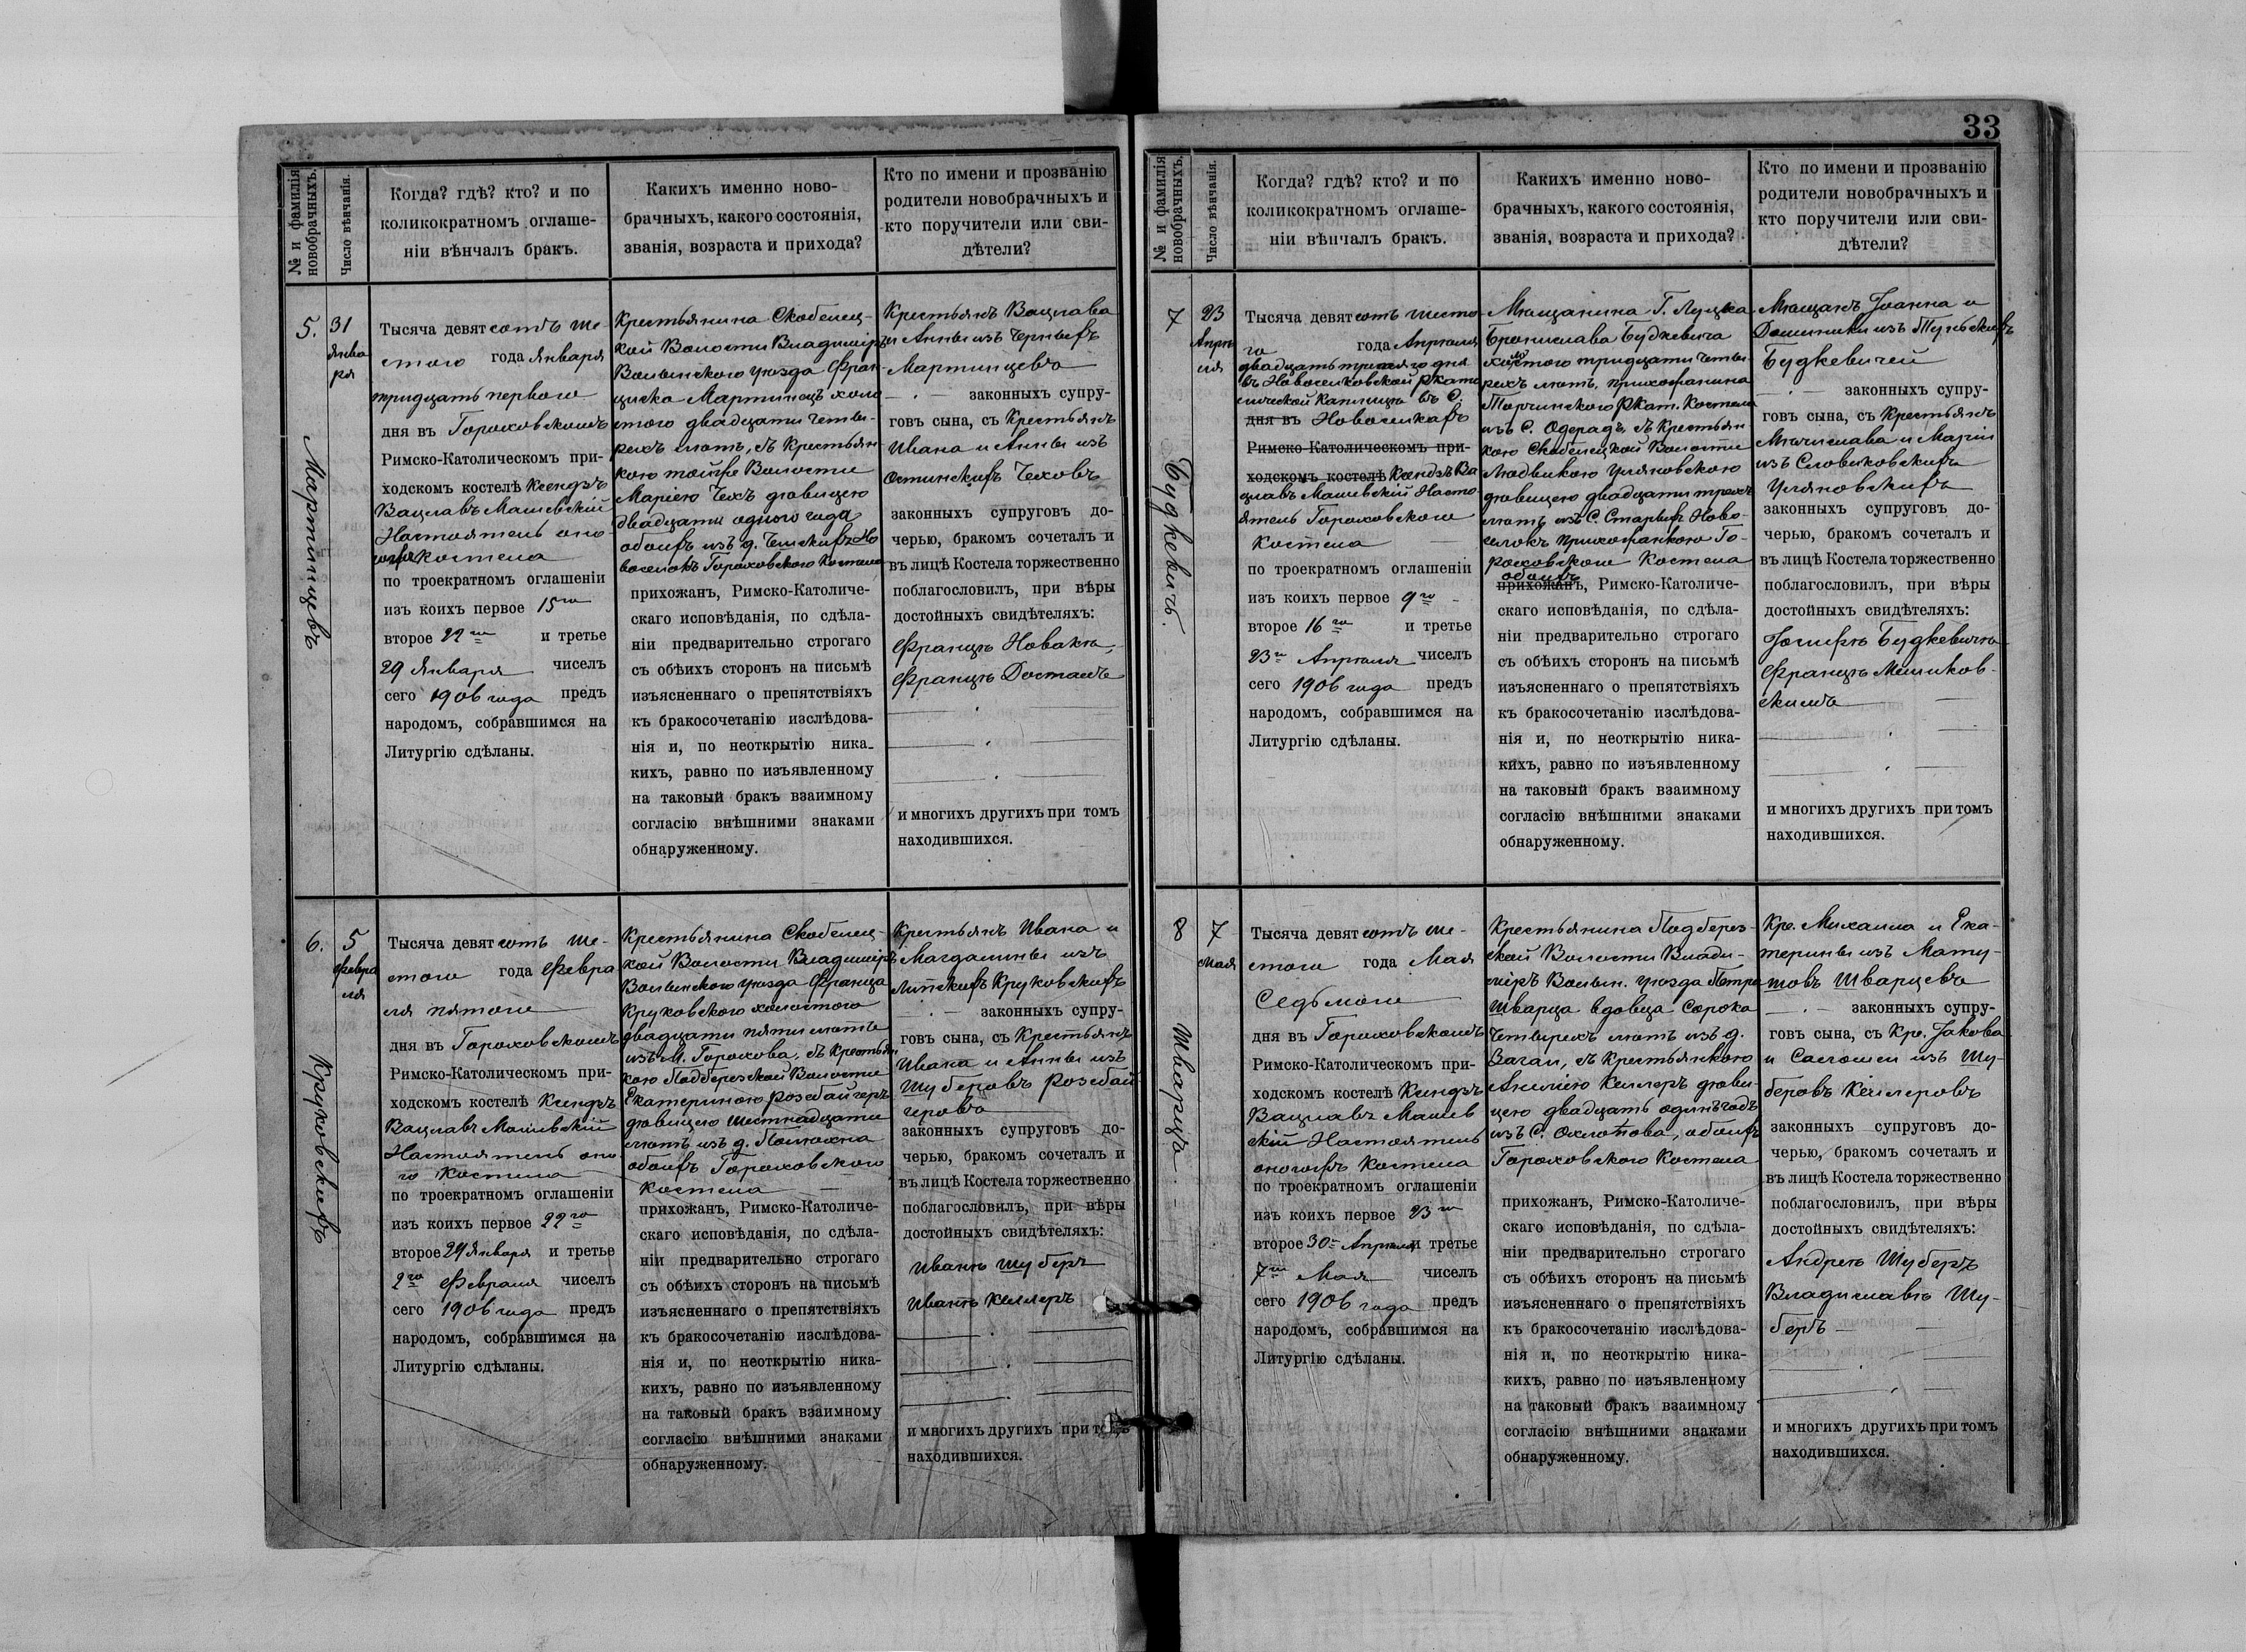 № и фамилія новобрачныхъ.
Число вѣнчанія.
Когда? гдѣ? кто? и по
коликократномъ оглаше-
ніи вѣнчалъ бракъ.
Какихъ именно ново-
брачныхъ, какого состоянія,
званія, возраста и прихода?
Кто по имени и прозванію
родители новобрачныхъ и
кто поручители или сви-
дѣтели?
5.
Мартинцевъ
31
Янва
ря
Тысяча девятсотъ ше-
стого года Января
тридцать первого
дня въ Гороховскомъ
Римско-Католическомъ при-
ходскомъ костелѣ Ксендзъ
Вацлавъ Машевскій
Настоятель оно-
гожъ Костела
по троекратномъ оглашеніи
изъ коихъ первое 15го
второе 22го и третье
29 Января чиселъ
сего 1906 года предъ
народомъ, собравшимся на
Литургію сдѣланы.
Крестьянина Скобелец-
кой Волости Владимиръ
Волынского уѣзда Фран-
циска Мартинецъ холо
стого двадцати четы-
рехъ лѣтъ, съ Крестьян-
кою тойже Волости
Маріею Чехъ дѣвицею
двадцати одного года
обоихъ изъ д. Чешскихъ Но
воселокъ Гороховского Костела
прихожанъ, Римско-Католиче-
скаго исповѣданія, по сдѣла-
ніи предварительно строгаго
съ обѣихъ сторонъ на письмѣ
изъясненнаго о препятствіяхъ
къ бракосочетанію изслѣдова-
нія и, по неоткрытію ника-
кихъ, равно по изъявленному
на таковый бракъ взаимному
согласію внѣшними знаками
обнаруженному.
Крестьянъ Вацлава
и Анны изъ Черныхъ
Мартинцевъ
законныхъ супру-
говъ сына, съ Крестьянъ
Ивана и Анны изъ
Остинскихъ Чеховъ
законныхъ супруговъ до-
черью, бракомъ сочеталъ и
въ лицѣ Костела торжественно
поблагословилъ, при вѣры
достойныхъ свидѣтеляхъ:
Францѣ Новакѣ,
Францѣ Досталь
и многихъ другихъ при томъ
находившихся.
6.
Круковскихъ
5
Февра
ля
Тысяча девятсотъ ше-
стого года Февра
ля пятого
дня въ Гороховскомъ
Римско-Католическомъ при-
ходскомъ костелѣ Ксендзъ
Вацлавъ Машевскій
Настоятель оно
го Костела
по троекратномъ оглашеніи
изъ коихъ первое 22го
второе 29 Января и третье
2го Февраля чиселъ
сего 1906 года предъ
народомъ, собравшимся на
Литургію сдѣланы.
Крестьянина Скобелец-
кой Волости Владимиръ
Волынского уѣзда Франца
Круковского холостого
двадцати пяти лѣтъ
изъ М. Горохова, съ Крестьян
кою Подберезской Волости
Екатериною Розебайгеръ
дѣвицею шестнадцати
лѣтъ изъ д. Полюхна
обоихъ Гороховского
Костела
прихожанъ, Римско-Католиче-
скаго исповѣданія, по сдѣла-
ніи предварительно строгаго
съ обѣихъ сторонъ на письмѣ
изъясненнаго о препятствіяхъ
къ бракосочетанію изслѣдова-
нія и, по неоткрытію ника-
кихъ, равно по изъявленному
на таковый бракъ взаимному
согласію внѣшними знаками
обнаруженному.
Крестьянъ Ивана и
Магдалины изъ
Липскихъ Круковскихъ
законныхъ супру-
говъ сына, съ Крестьянъ
Ивана и Анны изъ
Шуберовъ Розебай
геровъ
законныхъ супруговъ до-
черью, бракомъ сочеталъ и
въ лицѣ Костела торжественно
поблагословилъ, при вѣры
достойныхъ свидѣтеляхъ:
Иванѣ Шуберъ
Иванѣ Келлеръ
и многихъ другихъ при томъ
находившихся.
33
№ и фамилія новобрачныхъ.
Число вѣнчанія.
Когда? гдѣ? кто? и по
коликократномъ оглаше-
ніи вѣнчалъ бракъ.
Какихъ именно ново-
брачныхъ, какого состоянія,
званія, возраста и прихода?
Кто по имени и прозванію
родители новобрачныхъ и
кто поручители или сви-
дѣтели?
7
Будкевичъ.
23
Апрѣ
ля
Тысяча девятсотъ шесто
го года Апрѣля
двадцать третяго дня
въ Новоселковской Ркато
лической Каплицѣ въ С.
дня въ Новоселкахъ
Римско-Католическомъ при-
ходскомъ костелѣ Ксендзъ Ва
цлавъ Машевскій Насто
ятель Гороховского
Костела
по троекратномъ оглашеніи
изъ коихъ первое 9го
второе 16го и третье
23го Апрѣля чиселъ
сего 1906 года предъ
народомъ, собравшимся на
Литургію сдѣланы.
Мѣщанина Г. Луцка
Бронислава Будкевича
холостого тридцати четы-
рехъ лѣтъ, прихожанина
Торчинского Ркат. Костела
изъ С. Одерадъ, съ Крестьян
кою Скобелецкой Волости
Людвикою Уляновскою
дѣвицею двадцати трехъ
лѣтъ изъ С. Старыхъ Ново-
селокъ прихожанкою Го-
роховского Костела
обоихъ
прихожанъ, Римско-Католиче-
скаго исповѣданія, по сдѣла-
ніи предварительно строгаго
съ обѣихъ сторонъ на письмѣ
изъясненнаго о препятствіяхъ
къ бракосочетанію изслѣдова-
нія и, по неоткрытію ника-
кихъ, равно по изъявленному
на таковый бракъ взаимному
согласію внѣшними знаками
обнаруженному.
Мѣщанъ Іоанна и
Доминики изъ
Будкевичей
законныхъ супру-
говъ сына, съ Крестьянъ
Мѣчислава и Маріи
изъ Словиковскихъ
Уляновскихъ
законныхъ супруговъ до-
черью, бракомъ сочеталъ и
въ лицѣ Костела торжественно
поблагословилъ, при вѣры
достойныхъ свидѣтеляхъ:
Іосифѣ Будкевичѣ
Францѣ Мѣшков-
скимъ
и многихъ другихъ при томъ
находившихся.
8
Шварцъ
7
мая
Тысяча девятсотъ ше-
стого года Мая
Седьмого
дня въ Гороховскомъ
Римско-Католическомъ при-
ходскомъ костелѣ Ксендзъ
Вацлавъ Машев
скій Настоятель
оногожъ Костела
по троекратномъ оглашеніи
изъ коихъ первое 23го
второе 30го Апрѣля и третье
7го Мая чиселъ
сего 1906 года предъ
народомъ, собравшимся на
Литургію сдѣланы.
Крестьянина Подберез-
ской Волости Влади-
міръ Волын. уѣзда Петра
Шварца вдовца Сорока
Четырехъ лѣтъ изъ д.
Загаи, съ Крестьянкою
Анеліею Келлеръ дѣви-
цею двадцать одинъ годъ
изъ С. Охлопова, обоихъ
Гороховского Костела
прихожанъ, Римско-Католиче-
скаго исповѣданія, по сдѣла-
ніи предварительно строгаго
съ обѣихъ сторонъ на письмѣ
изъясненнаго о препятствіяхъ
къ бракосочетанію изслѣдова-
нія и, по неоткрытію ника-
кихъ, равно по изъявленному
на таковый бракъ взаимному
согласію внѣшними знаками
обнаруженному.
Кре. Михаила и Ека-
терины изъ Мату-
товъ Шварцевъ
законныхъ супру-
говъ сына, съ Кре. Іакова
и Саломеи изъ Шу-
беровъ Келлеровъ
законныхъ супруговъ до-
черью, бракомъ сочеталъ и
въ лицѣ Костела торжественно
поблагословилъ, при вѣры
достойныхъ свидѣтеляхъ:
Андреѣ Шуберъ
Владиславѣ Шу-
беръ
и многихъ другихъ при томъ
находившихся.